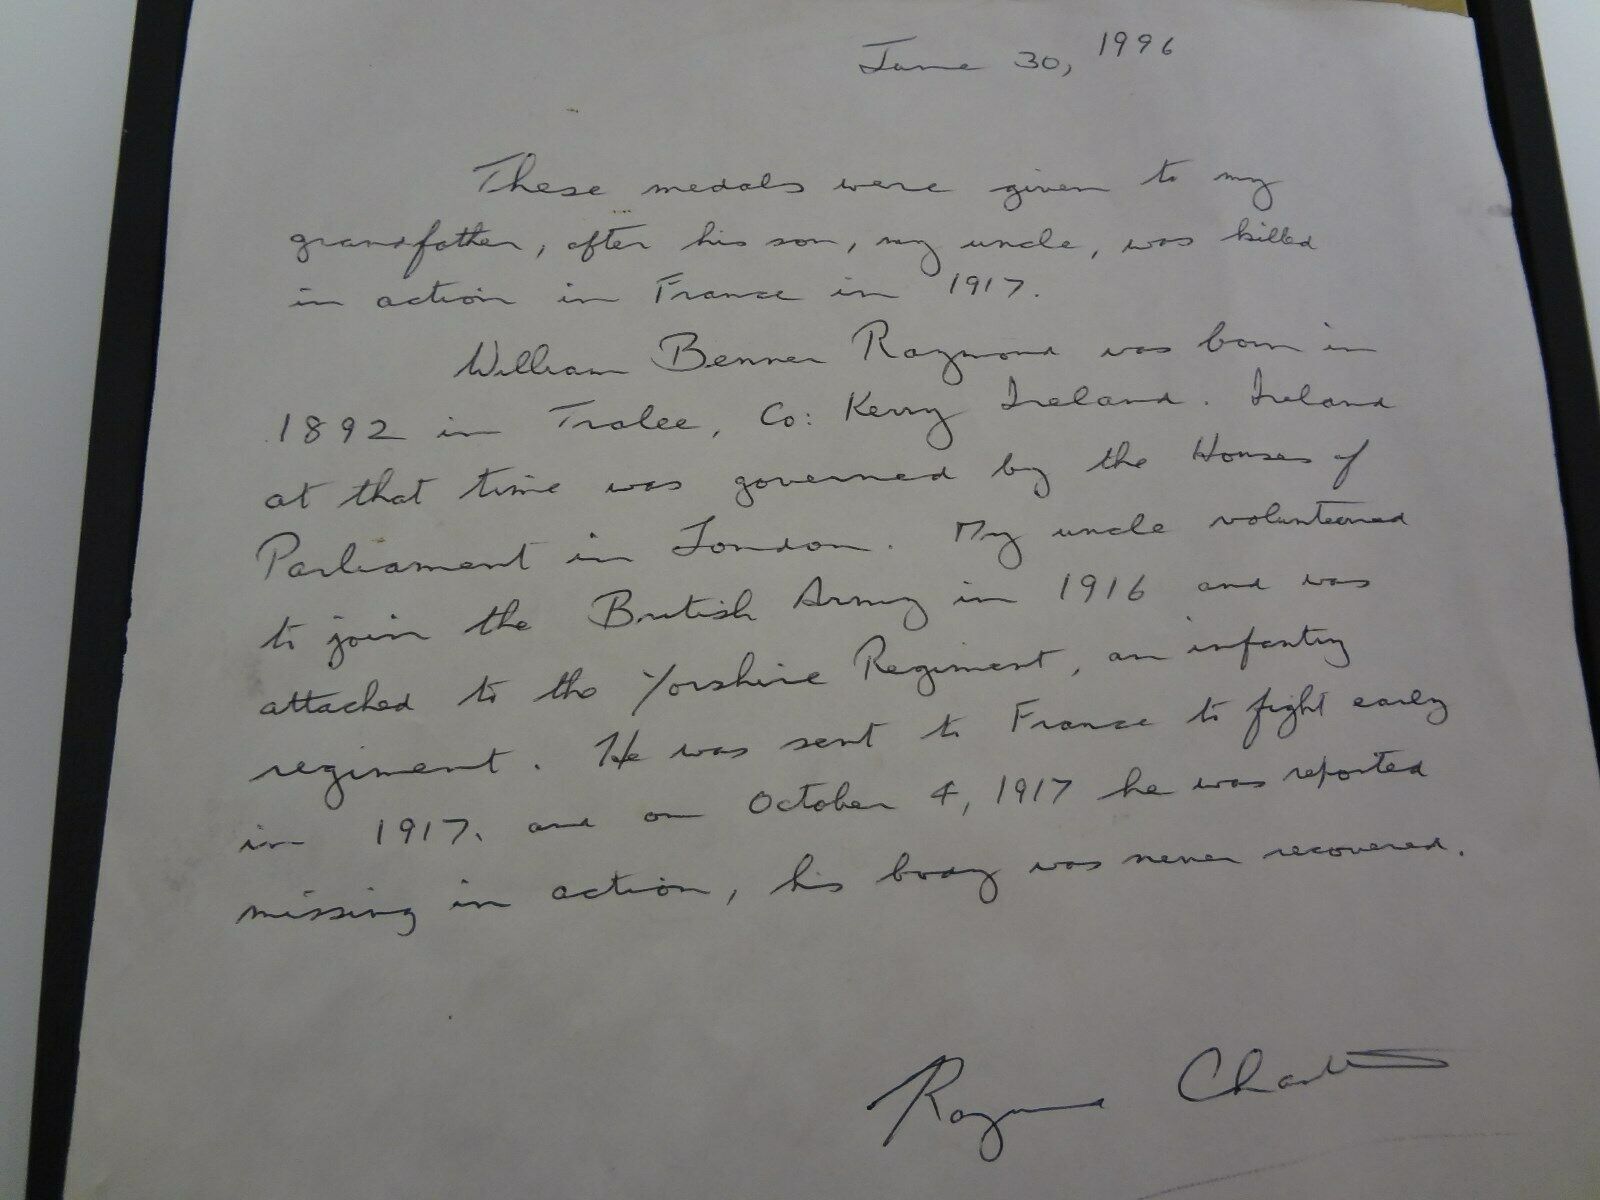 June 30, 1996
These medals were given to my
grandfather, after his son, my uncle, was killed
in action in France in 1917.
William Benner Raymond was born in
1892 in Tralee, Co: Kerry Ireland. Ireland
at that time was governed by the Houses of
Parliament in London. My uncle volunteered
to join the British Army in 1916 and was
attached to the Yorshire Regiment, an infantry
regiment. He was sent to France to fight early
in 1917. and on October 4, 1917 he was reported
missing in action, his body was never recovered.
Raymond